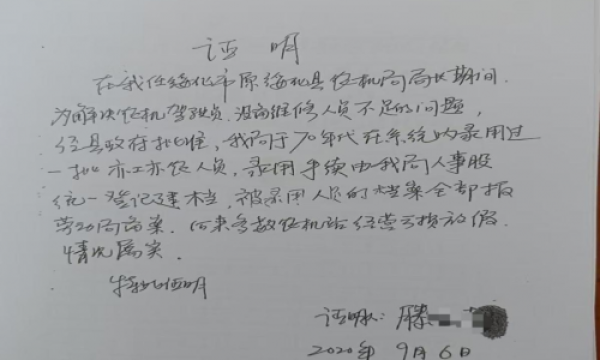 证明
在我任绥化市原绥化县农机局局长期间.
为解决农机驾驶员.设备维修人员不足的问题,
经县政府批准,我局于70年代在系统内录用过
一批亦工亦农人员,录用手续由我局人事股
统一登记建档,被录用人员的档案全部报
劳动局备案.后来多数农机站经营亏损放假.
情况属实.
特此证明
证明人:滕
2020年9月6日